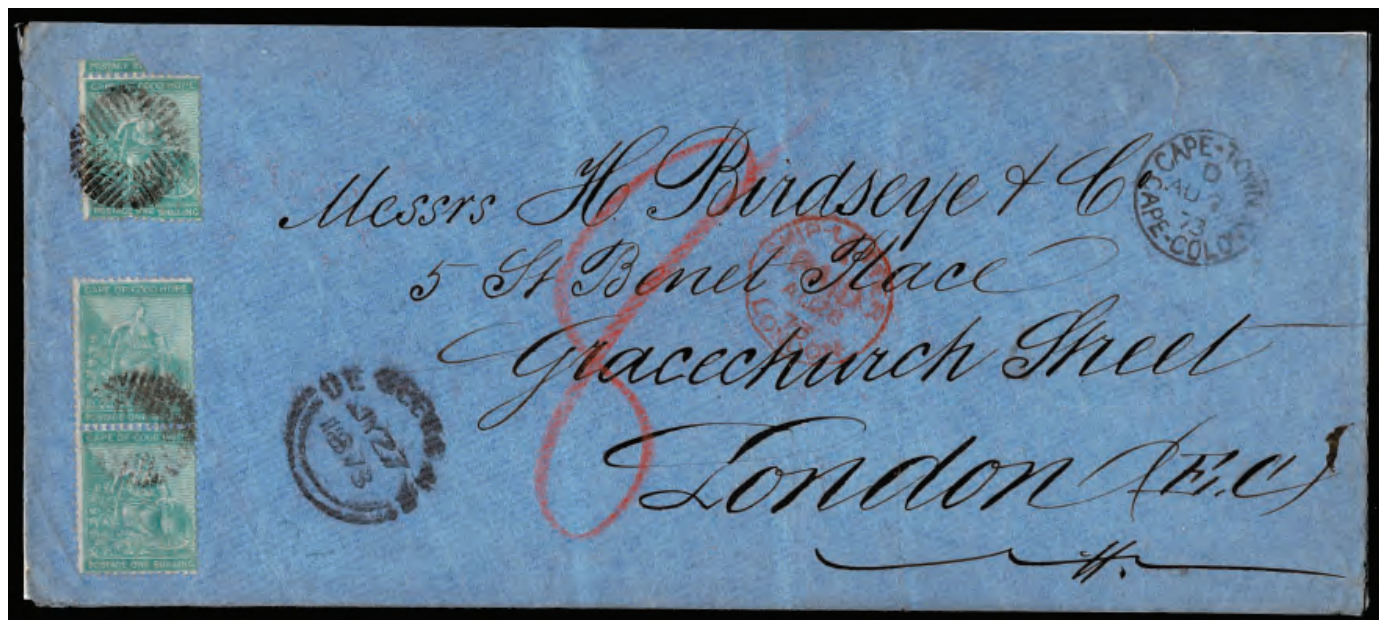 CAPE OF GOOD HOPE
POSTAGE ONE SHILLING
CAPE OF GOOD HOPE
POSTAGE ONE SHILLING
CAPE OF GOOD HOPE
POSTAGE ONE SHILLING
Messrs H. Birdseye & C
5 St Benet Place
Gracechurch Street
London (E.C)
8
CAPE-TOWN
AU
73
CAPE-COLONY
LONDON
27
73